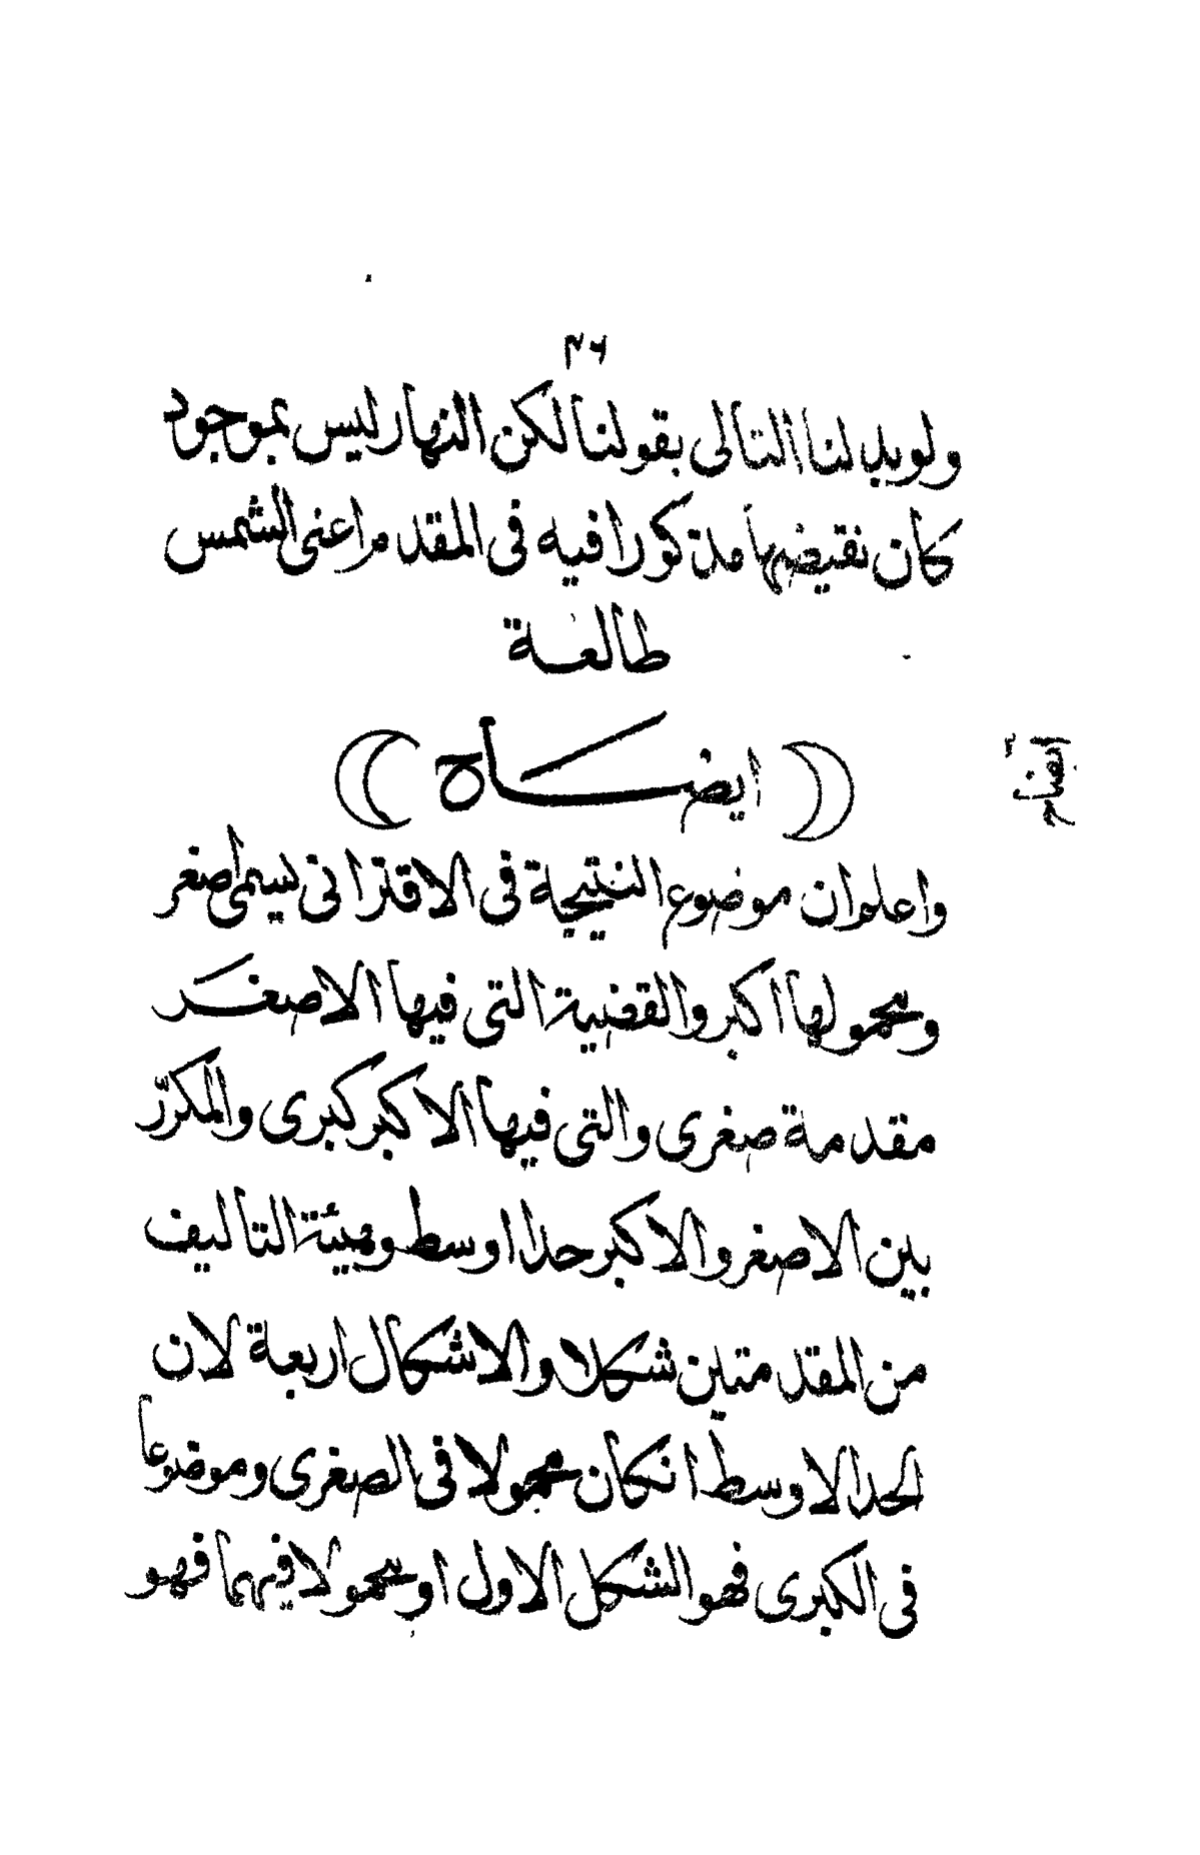 ٤٦
ولو بدلنا التالى بقولنا لكن النهار ليس بموجود
كان نقيضها مذكورا فيه فى المقدم اعنى الشمس
طالعة
( ايضاح )
واعلم ان موضوع النتيجة فى الاقترانى يسمى اصغر
ومحمولها اكبر والقضية التى فيها الاصغر
مقدمة صغرى والتى فيها الاكبر كبرى والمكرّر
بين الاصغر والاكبر حدا اوسط وهيئة التاليف
من المقدمتين شكلا والاشكال اربعة لان
الحد الاوسط انكان محمولا فى الصغرى وموضوعا
فى الكبرى فهو الشكل الاول او محمولا فيهما فهو